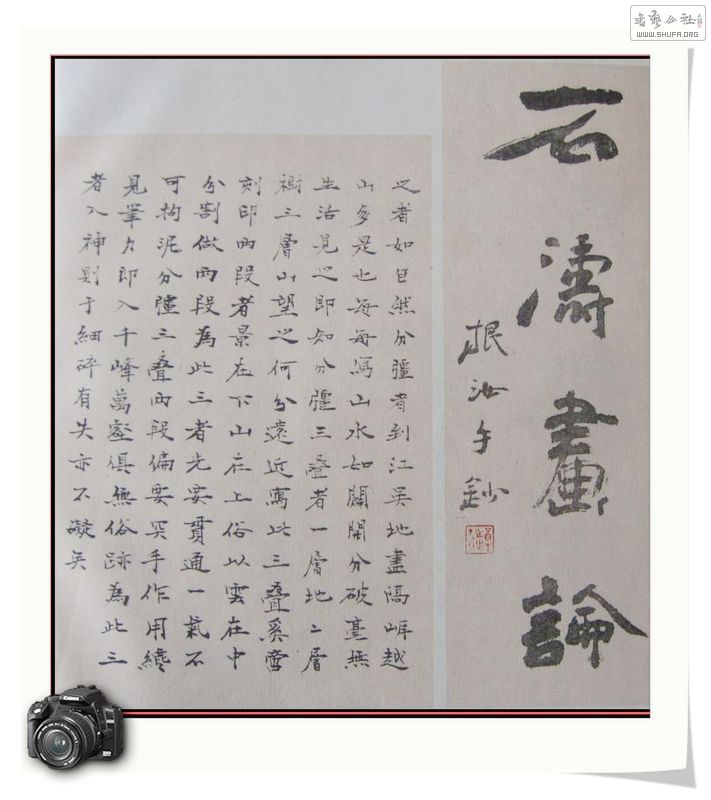 書藝公社
WWW.SHUFA.ORG
石濤畫論
根汝手鈔
之者如自然分疆者到江吳地盡隔岸越
山多是也每每寫山水如闢開分破毫無
生活見之即知分疆三疊者一層地二層
樹三層山望之何分遠近寫此三疊奚啻
刻印兩段者景在下山在上俗以雲在中
分割做兩段為此三者先要貫通一氣不
可拘泥分疆三疊兩段偏要突手作用纔
見筆力即入千峰萬壑俱無俗跡為此三
者入神則于細碎有失亦不礙矣
Canon